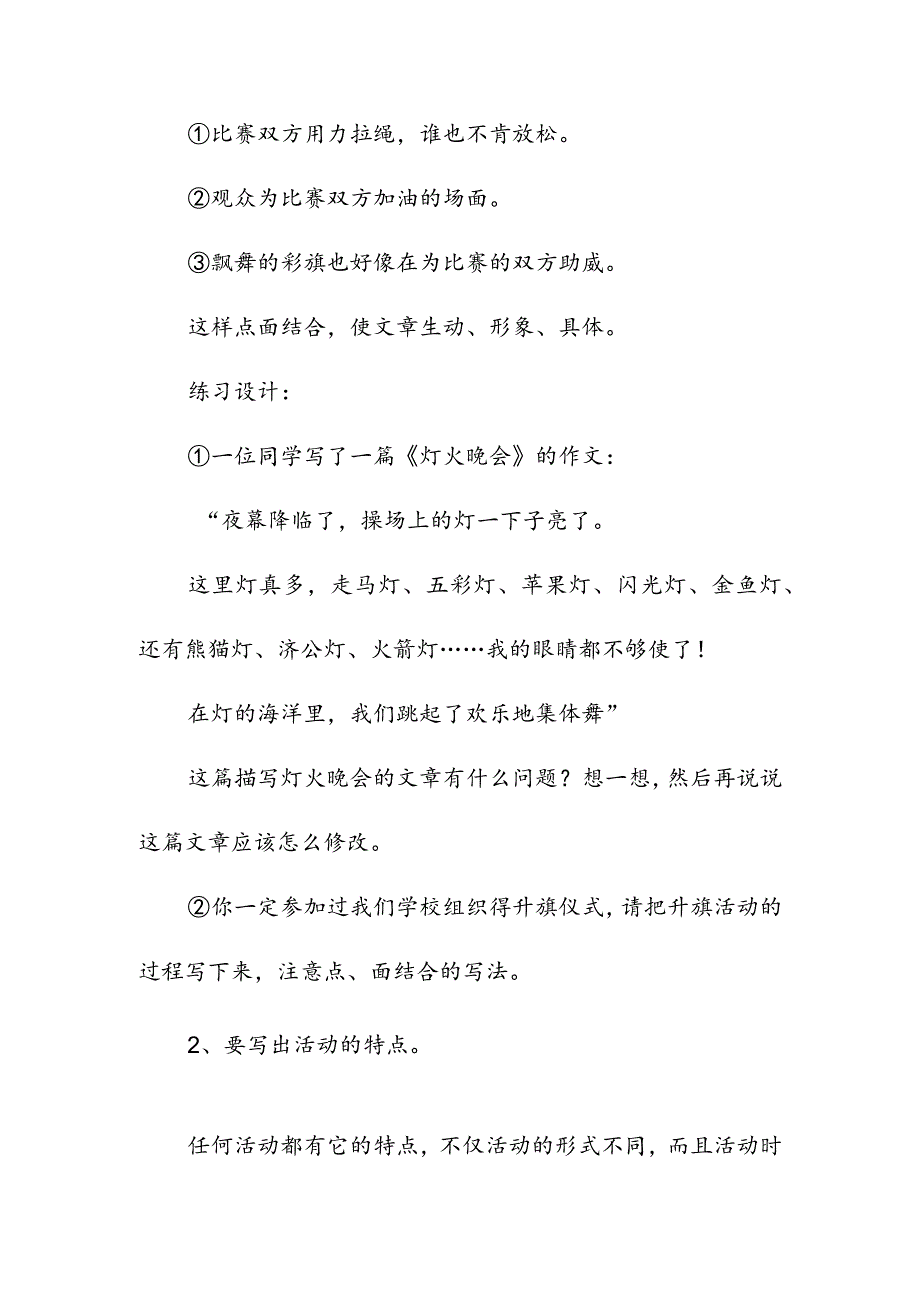 ①比赛双方用力拉绳，谁也不肯放松。
②观众为比赛双方加油的场面。
③飘舞的彩旗也好像在为比赛的双方助威。
这样点面结合，使文章生动、形象、具体。
练习设计：
①一位同学写了一篇《灯火晚会》的作文：
“夜幕降临了，操场上的灯一下子亮了。
这里灯真多，走马灯、五彩灯、苹果灯、闪光灯、金鱼灯、
还有熊猫灯、济公灯、火箭灯……我的眼睛都不够使了！
在灯的海洋里，我们跳起了欢乐地集体舞”
这篇描写灯火晚会的文章有什么问题？想一想，然后再说说
这篇文章应该怎么修改。
②你一定参加过我们学校组织得升旗仪式，请把升旗活动的
过程写下来，注意点、面结合的写法。
2、要写出活动的特点。
任何活动都有它的特点，不仅活动的形式不同，而且活动时